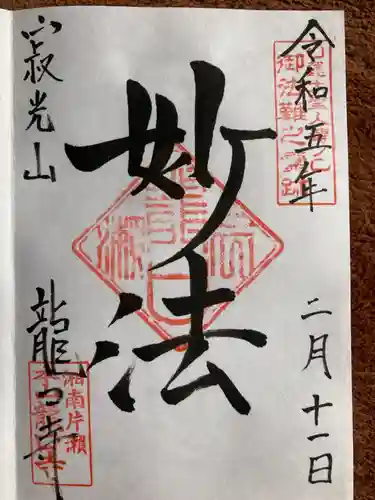 令和五年
二月十一日
妙法
寂光山
龍口寺
御法難之霊跡
湘南片瀬
本龍寺